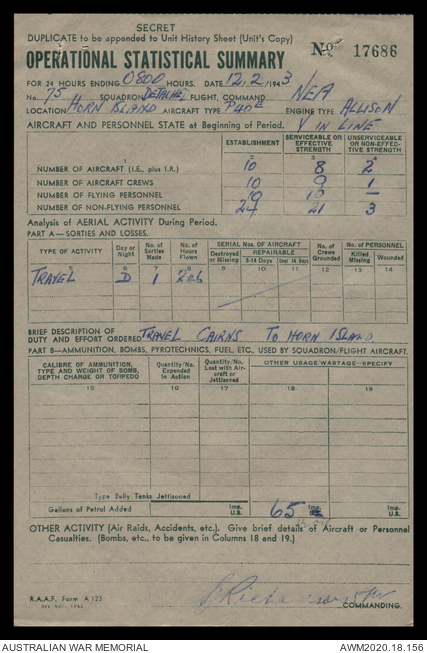 SECRET
DUPLICATE to be appended to Unit History Sheet (Unit's Copy)
OPERATIONAL STATISTICAL SUMMARY No 17686
FOR 24 HOURS ENDING 0800 HOURS. DATE 12/2/1943
No. 75 SQUADRON DETACHEL FLIGHT, COMMAND NEA
LOCATION HORN ISLAND AIRCRAFT TYPE P40E ENGINE TYPE ALLISON
AIRCRAFT AND PERSONNEL STATE at Beginning of Period. V IN LINE
ESTABLISHMENT SERVICEABLE OR EFFECTIVE STRENGTH UNSERVICEABLE OR NON-EFFECTIVE STRENGTH
1 2 3 4
NUMBER OF AIRCRAFT (I.E., plus I.R.) 10 8 2
NUMBER OF AIRCRAFT CREWS 10 9 1
NUMBER OF FLYING PERSONNEL 10 —
NUMBER OF NON-FLYING PERSONNEL 24 21 3
Analysis of AERIAL ACTIVITY During Period.
PART A—SORTIES AND LOSSES.
TYPE OF ACTIVITY Day or Night No. of Sorties Made No. of Hours Flown SERIAL Nos. OF AIRCRAFT No. of Crews Grounded No. of PERSONNEL
Destroyed or Missing REPAIRABLE Killed Missing Wounded
3-14 Days Over 14 Days
5 6 7 8 9 10 11 12 13 14
TRAVEL D 1
BRIEF DESCRIPTION OF
DUTY AND EFFORT ORDERED TRAVEL CAIRNS TO HORN ISLAND
PART B—AMMUNITION, BOMBS, PYROTECHNICS, FUEL, ETC., USED BY SQUADRON/FLIGHT AIRCRAFT.
CALIBRE OF AMMUNITION, TYPE AND WEIGHT OF BOMB, DEPTH CHARGE OR TORPEDO Quantity/No. Expended in Action Quantity/No. Lost with Aircraft or Jettisoned OTHER USAGE/WASTAGE—SPECIFY
15 16 17 18 19
Type Belly Tanks Jettisoned
Gallons of Petrol Added Imp. U.S. 65 Imp. U.S. Imp. U.S.
OTHER ACTIVITY (Air Raids, Accidents, etc.). Give brief details of Aircraft or Personnel
Casualties. (Bombs, etc., to be given in Columns 18 and 19.)
COMMANDING.
R.A.A.F. Form A 123
AUSTRALIAN WAR MEMORIAL AWM2020.18.156